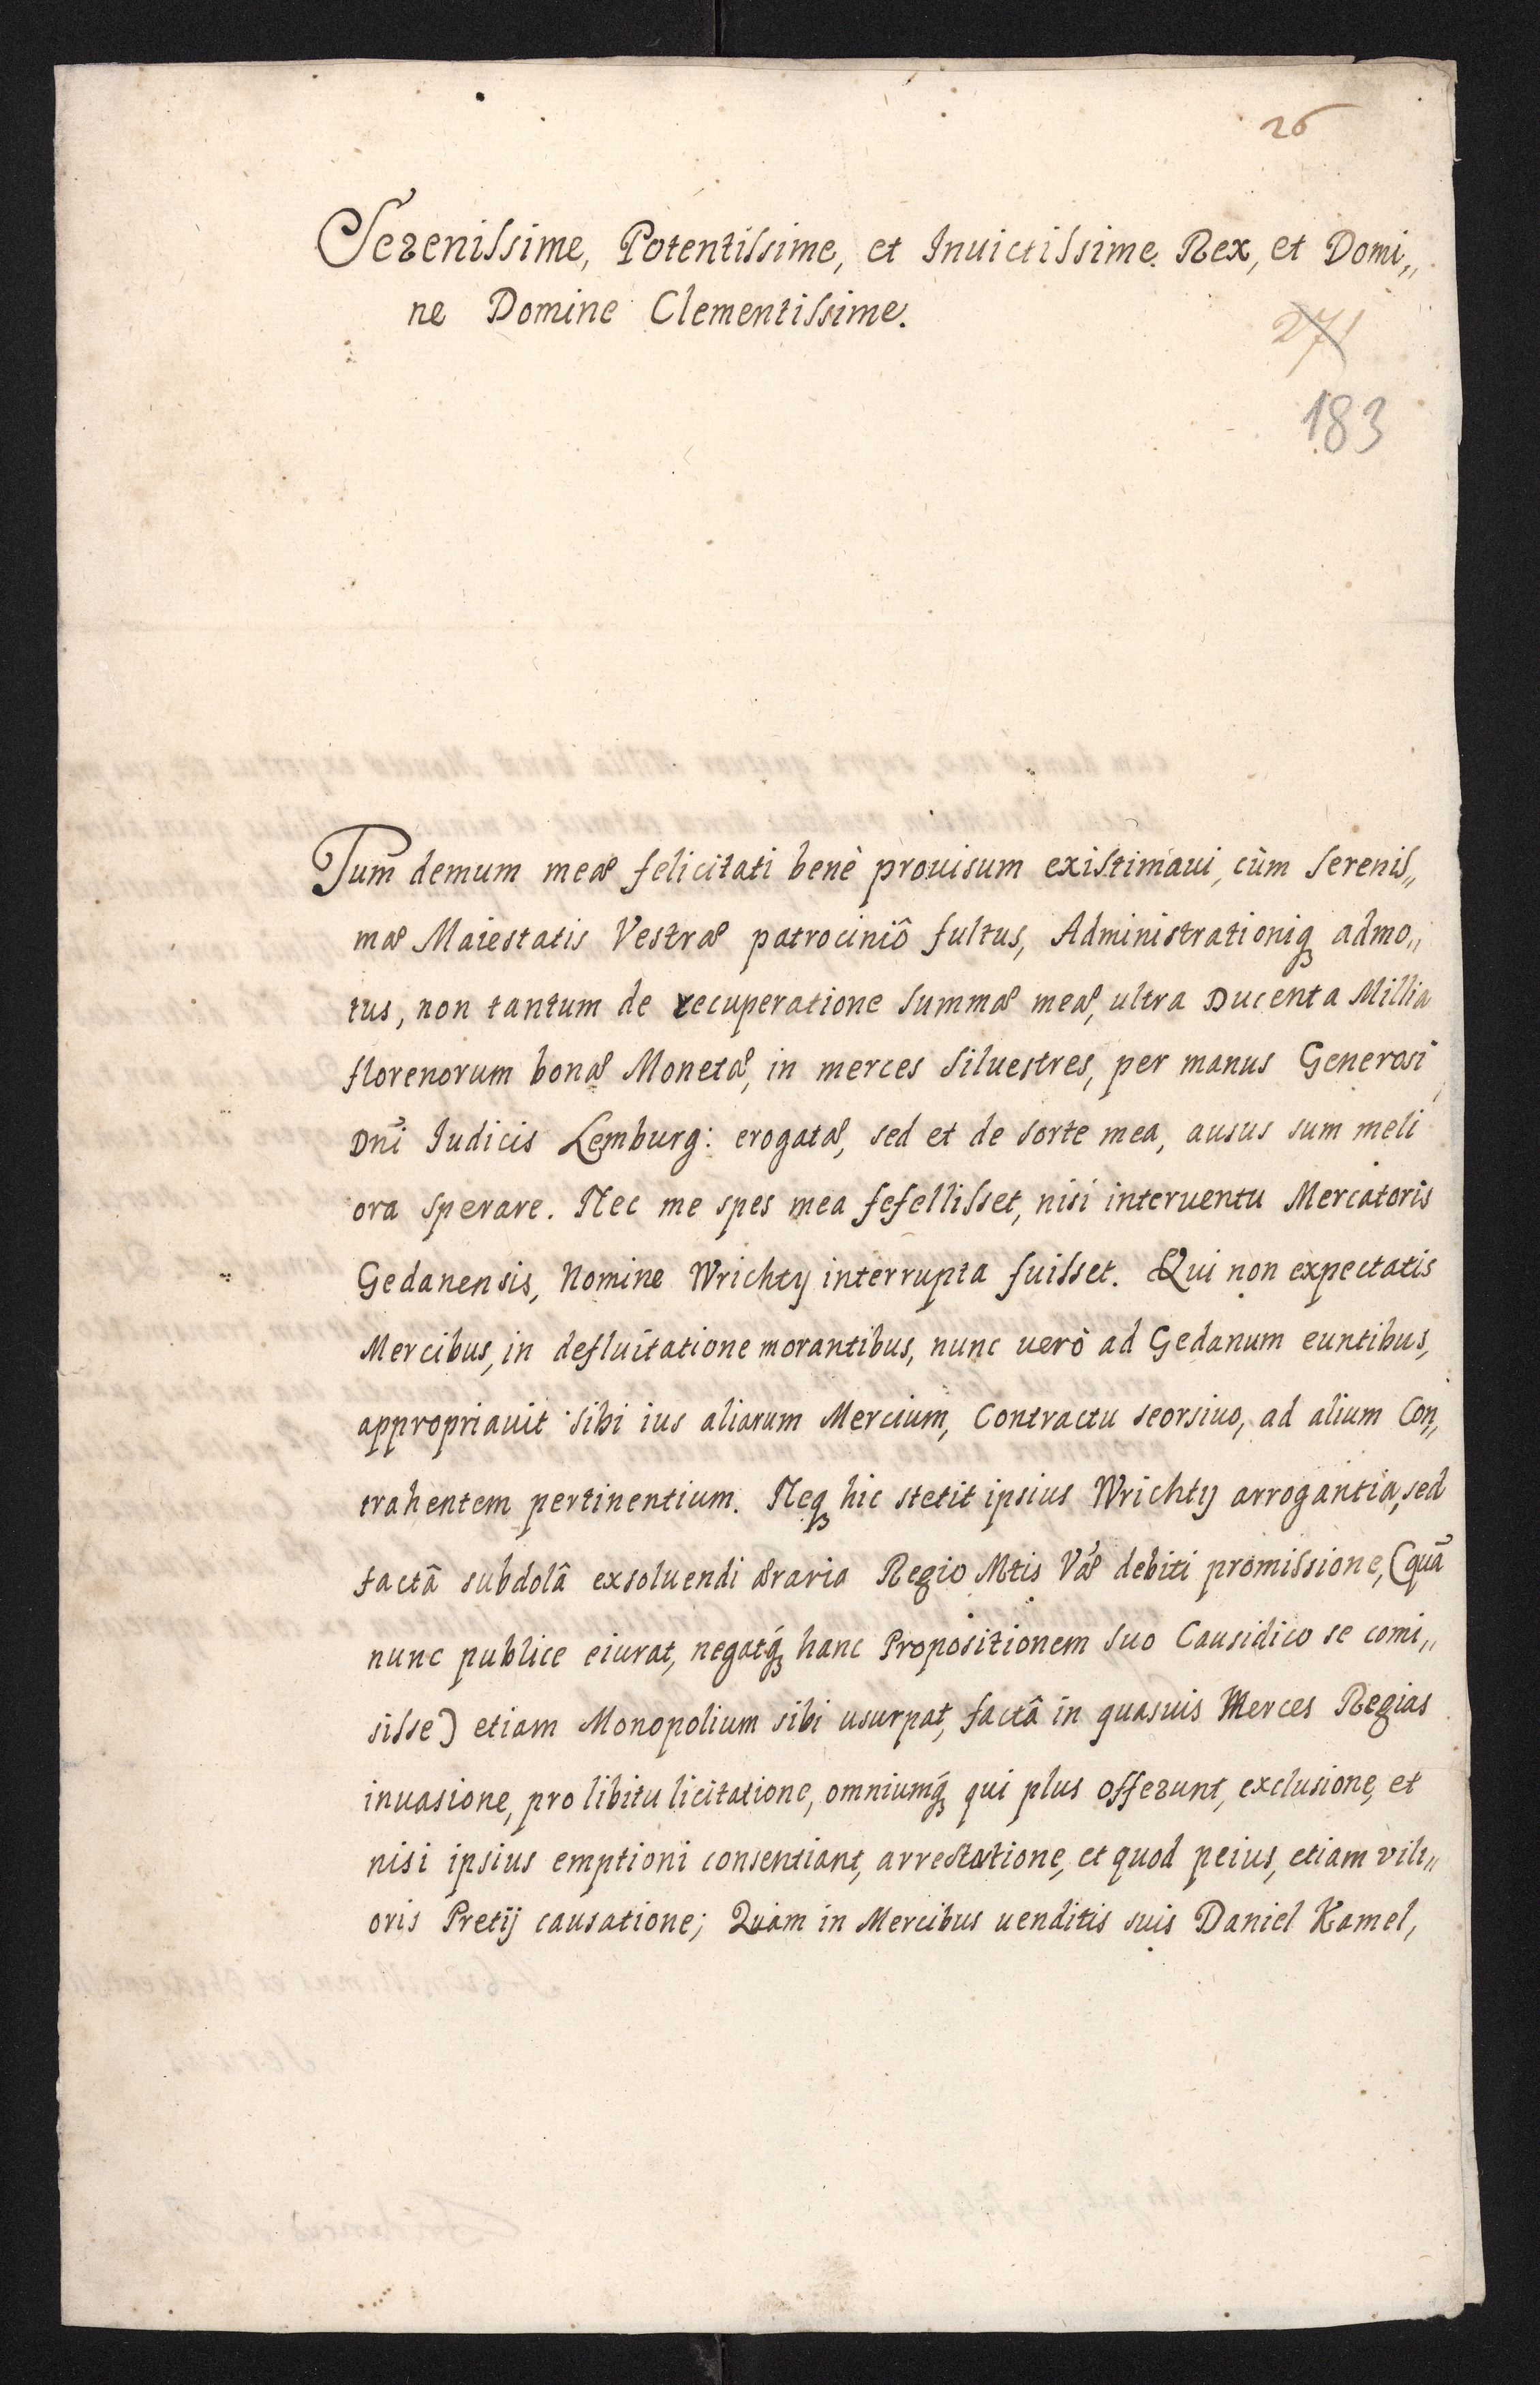 26
Serenissime, Potentissime, et Inuictissime Rex, et Domi„
ne Domine Clementissime.
271
183
Tum demum meæ felicitati benè prouisum existimaui, cùm Serenis„
mæ Maiestatis Vestræ patrociniô fultus, Administrationiq admo„
tus, non tantum de recuperatione Summæ meæ, ultra Ducenta Millia
florenorum bonæ Monetæ, in merces siluestres, per manus Generosi
Dñi Iudicis Lemburg: erogatæ, sed et de sorte mea, ausus sum meli
ora sperare. Nec me spes mea fefellisset, nisi interuentu Mercatoris
Gedanensis, Nomine Wrichty interrupta fuisset. Qui non expectatis
Mercibus, in defluitatione morantibus, nunc uerò ad Gedanum euntibus,
appropriauit sibi ius aliarum Mercium, Contractu seorsiuo, ad alium Con„
trahentem pertinentium. Neq hic stetit ipsius Wrichty arrogantia, sed
factâ subdolâ exsoluendi æraria Regio Mtis Væ debiti promissione, (quã
nunc publice eiurat, negatq hanc Propositionem suo Causidico se comi„
sisse) etiam Monopolium sibi usurpat, factâ in quasuis Merces Regias
inuasione, pro libitu licitatione, omniumq qui plus offerunt, exclusione, et
nisi ipsius emptioni consentiant, arrestatione, et quod peius, etiam vili„
oris Pretij causatione; Quam in Mercibus uenditis suis Daniel Kamel,